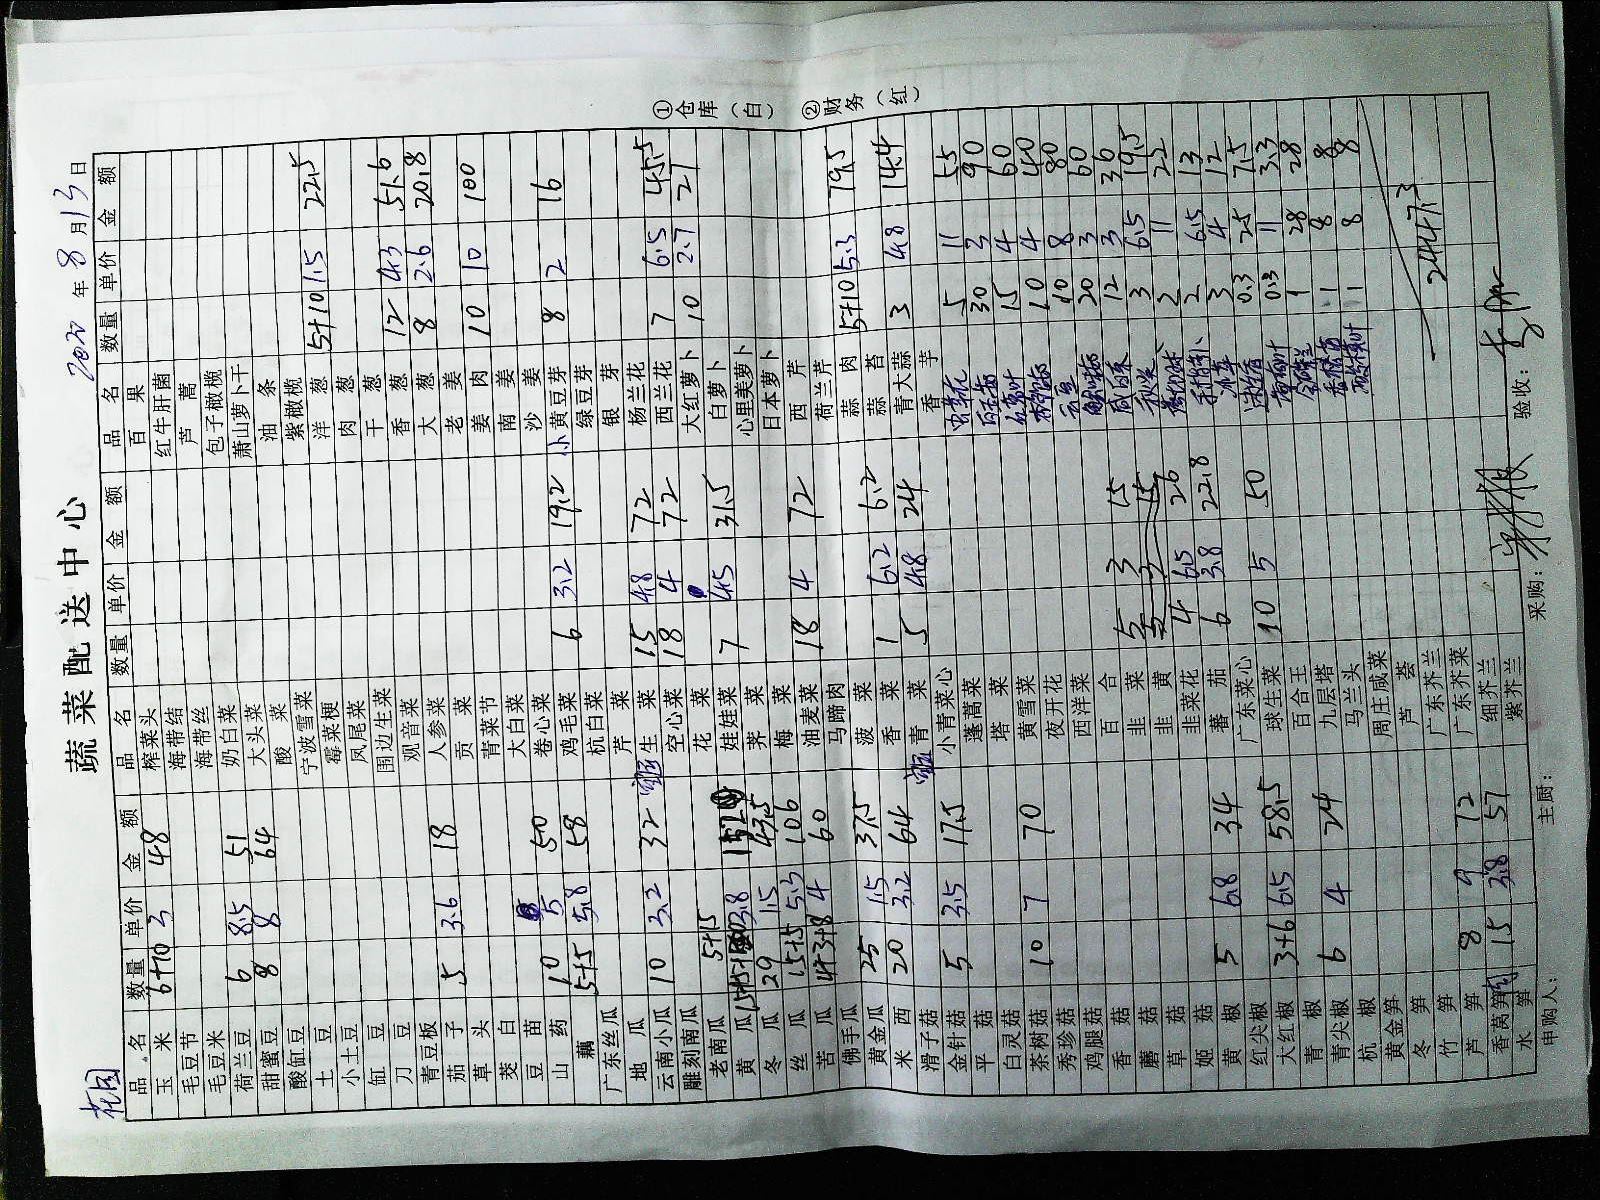 蔬菜配送中心
花园 2020年8月13日
品名 数量 单价 金额 品名 数量 单价 金额 品名 数量 单价 金额
玉米 6+10 3 48 榨菜头 百果
毛豆节 海带结 红牛肝菌
毛豆米 海带丝 芦蒿
荷兰豆 6 8.5 51 奶白菜 包子橄榄
甜蜜豆 8 8 64 大头菜 萧山萝卜干
酸缸豆 酸菜 油条
土豆 宁波雪菜 紫橄榄
小土豆 霉菜梗 洋葱 5+10 1.5 22.5
缸豆 凤尾菜 肉葱
刀豆 围边生菜 干葱
青豆板 观音菜 香葱 12 4.3 51.6
茄子 5 3.6 18 人参菜 大葱 8 2.6 20.8
草头 贡菜 老姜
茭白 青菜节 姜肉 10 10 100
豆苗 大白菜 南姜
山药 10 5 50 卷心菜 沙姜
藕 5+5 5.8 58 鸡毛菜 6 3.2 19.2 小黄豆芽 8 2 16
广东丝瓜 杭白菜 绿豆芽
地瓜 芹菜 银芽
云南小瓜 10 3.2 32 生菜 15 4.8 72 杨兰花
雕刻南瓜 空心菜 18 4 72 西兰花 7 6.5 45.5
老南瓜 花菜 大红萝卜 10 2.7 27
黄瓜 3.8 152 娃娃菜 7 4.5 31.5 白萝卜
冬瓜 29 1.5 43.5 荠菜 心里美萝卜
丝瓜 15+5 5.3 106 梅菜 日本萝卜
苦瓜 4+3+8 4 60 油麦菜 18 4 72 西芹
佛手瓜 马蹄肉 荷兰芹
黄金瓜 25 1.5 37.5 菠菜 蒜肉 5+10 5.3 79.5
米西 20 3.2 64 香菜 1 6.2 6.2 蒜苔
滑子菇 青菜 5 4.8 24 青大蒜 3 4.8 14.4
金针菇 5 3.5 17.5 小青菜心 香芋
平菇 蓬蒿菜 5 11 55
白灵菇 塔菜 30 3 90
茶树菇 10 7 70 黄雪菜 15 4 60
秀珍菇 夜开花 10 4 40
鸡腿菇 西洋菜 10 8 80
香菇 百合 20 3 60
蘑菇 韭菜 5 3 15 12 3 36
草菇 韭黄 3 6.5 19.5
姬菇 韭菜花 4 6.5 26 2 11 22
黄椒 5 6.8 34 蕃茄 6 3.8 22.8 2 6.5 13
红尖椒 广东菜心 3 4 12
大红椒 3+6 6.5 58.5 球生菜 10 5 50 0.3 25 7.5
青椒 百合王 0.3 11 3.3
青尖椒 6 4 24 九层塔 1 28 28
杭椒 马兰头 1 8 8
黄金笋 周庄咸菜 1 8 8
冬笋 芦荟
竹笋 广东芥兰
芦笋 8 9 72 广东芥菜 2447.3
香莴笋 15 3.8 57 细芥兰
水笋 紫芥兰
申购人: 主厨: 采购: 验收:
①仓库(白) ②财务(红)